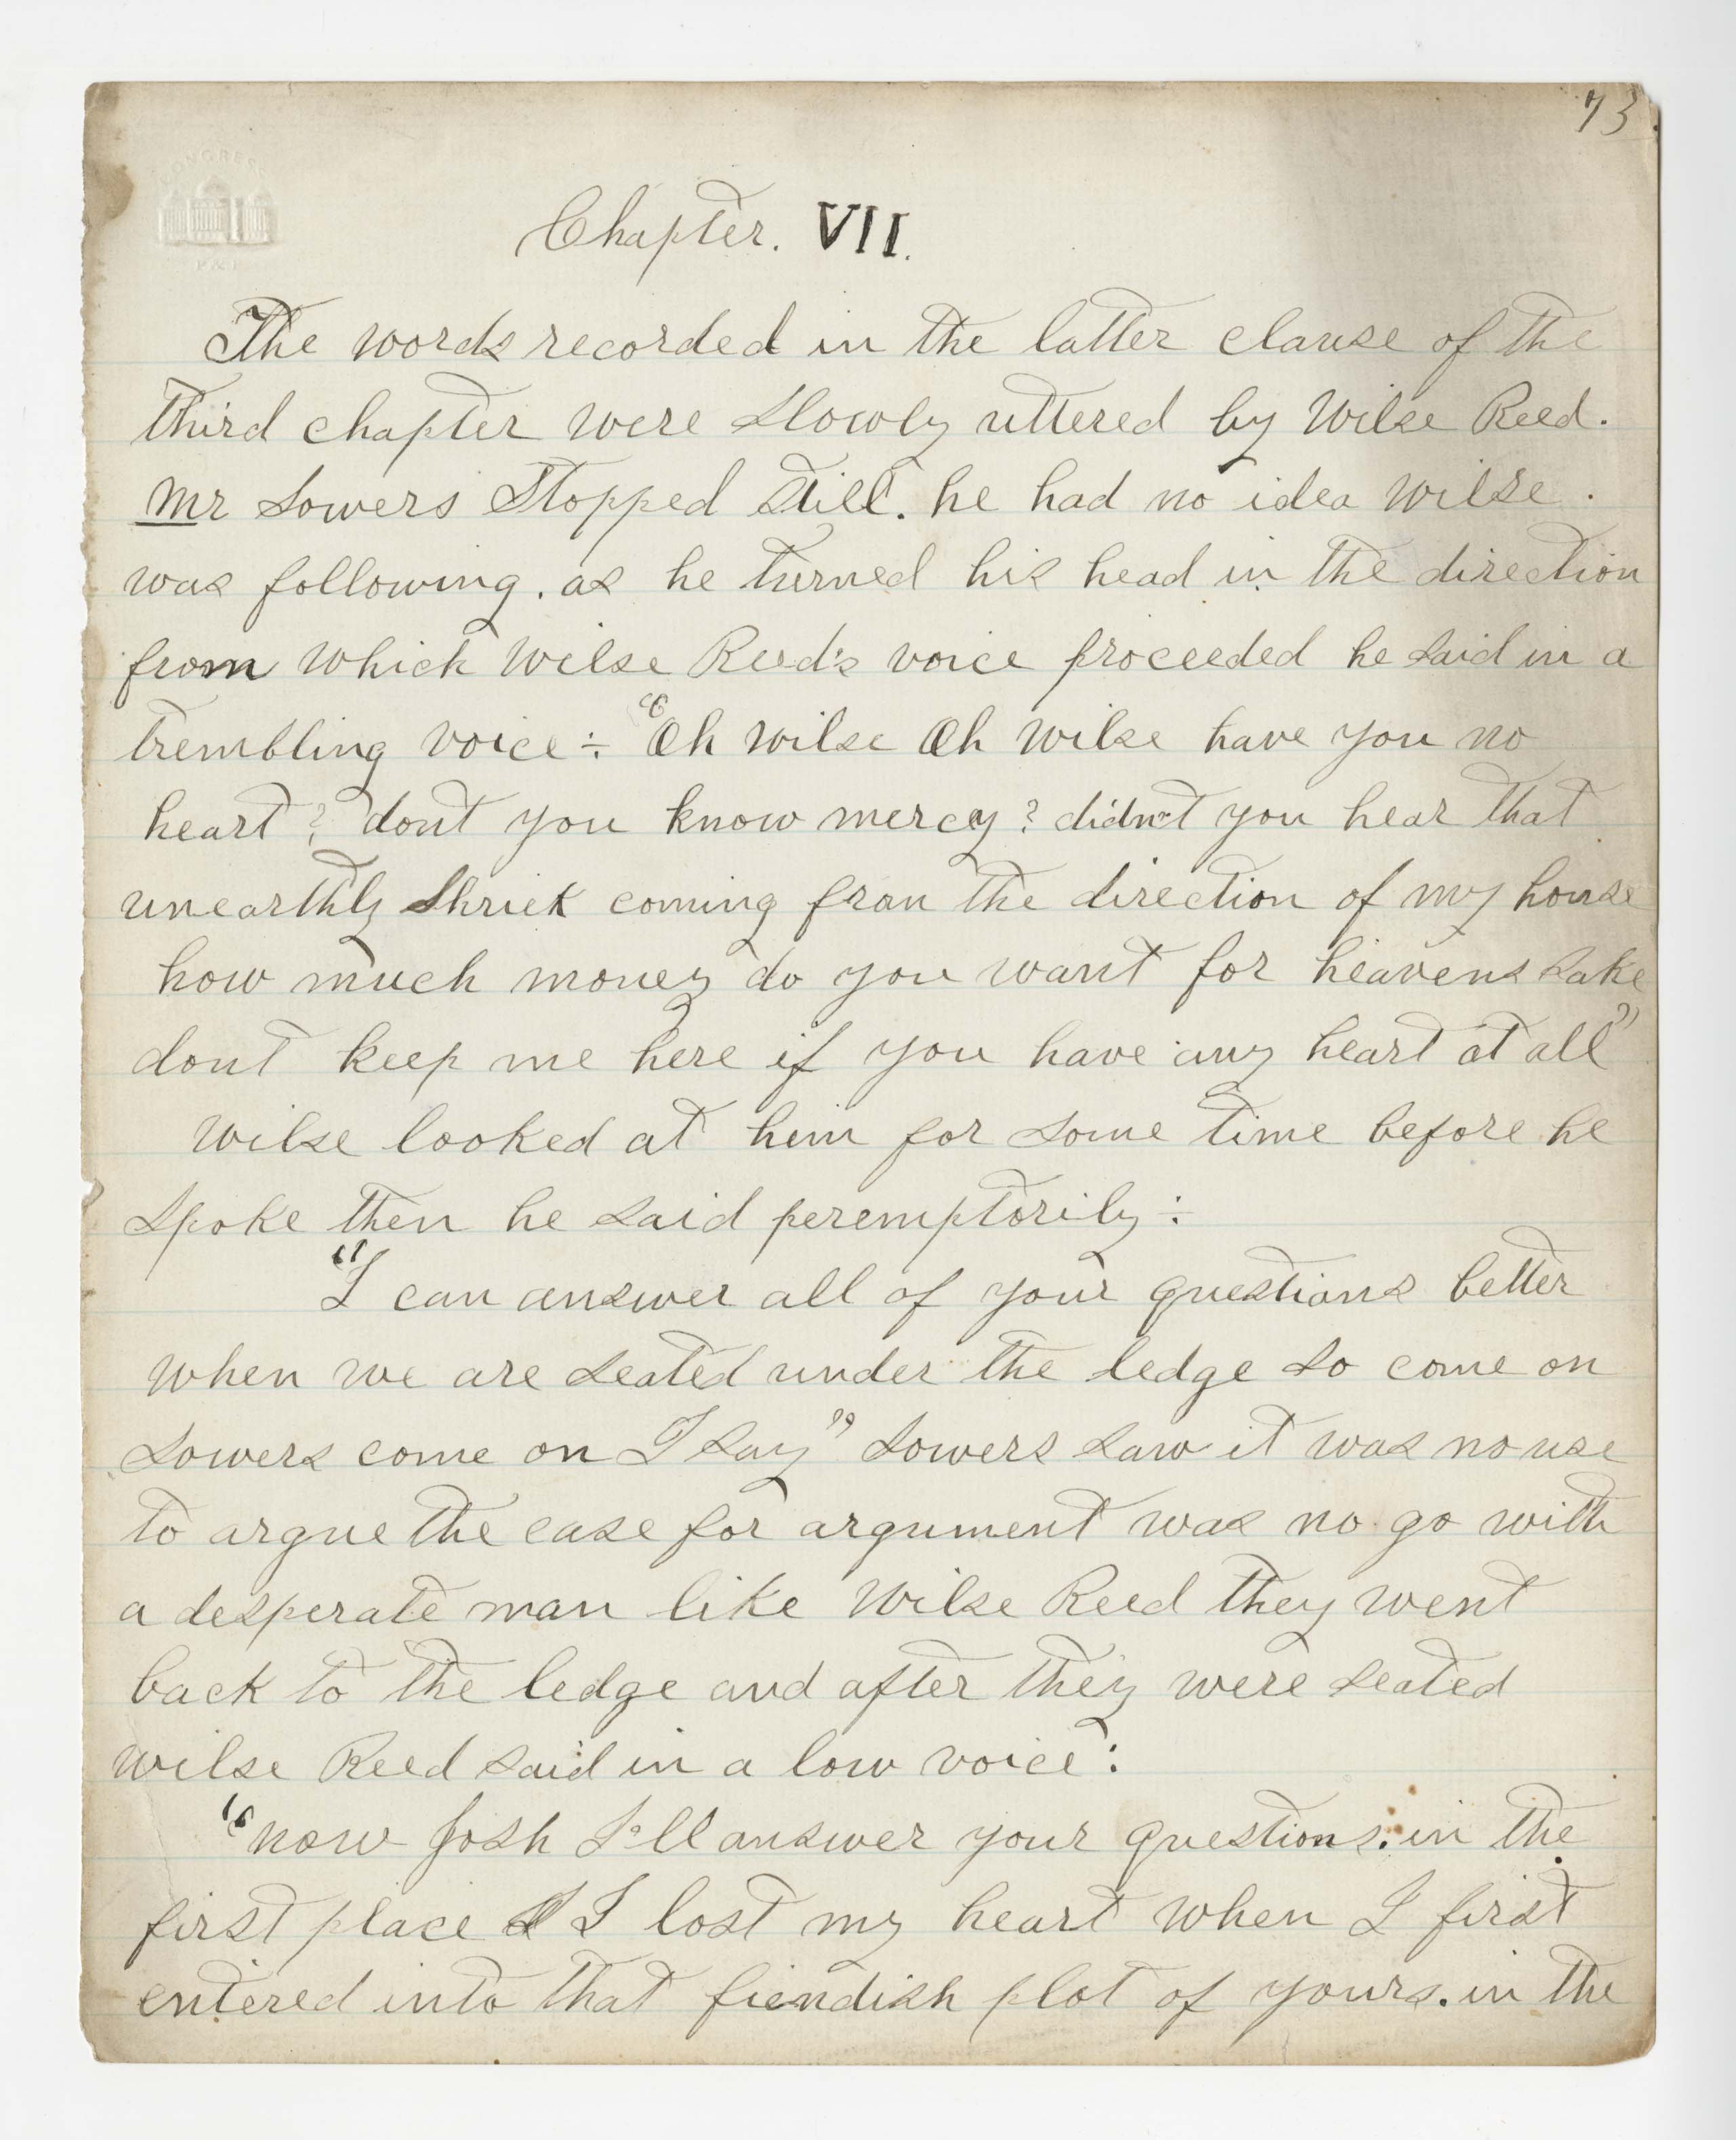 73
CONGRESS
P & P
Chapter. VII.
The words recorded in the latter clause of the
third chapter were slowly uttered by Wilse Reed.
Mr Sowers Stopped Still. he had no idea Wilse.
was following. as he turned his head in the direction
from which Wilse Reed's voice proceeded he said in a
trembling voice ÷ "Oh Wilse Oh Wilse have you no
heart? dont you know mercy? didn't you hear that
unearthly Shriek coming fron the direction of my house
how much money do you want for heavens sake
dont keep me here if you have any heart at all"
Wilse looked at him for some time before he
spoke then he said peremptorily ÷
"I can answer all of your questions better
when we are seated under the ledge so come on
Sowers come on I say" Sowers saw it was no use
to argue the case for argument was no go with
a desperate man like Wilse Reed they went
back to the ledge and after they were seated
Wilse Reed said in a low voice:
"now Josh I'll answer your questions: in the
first place I I lost my heart when I first
entered into that fiendish plot of yours. in the